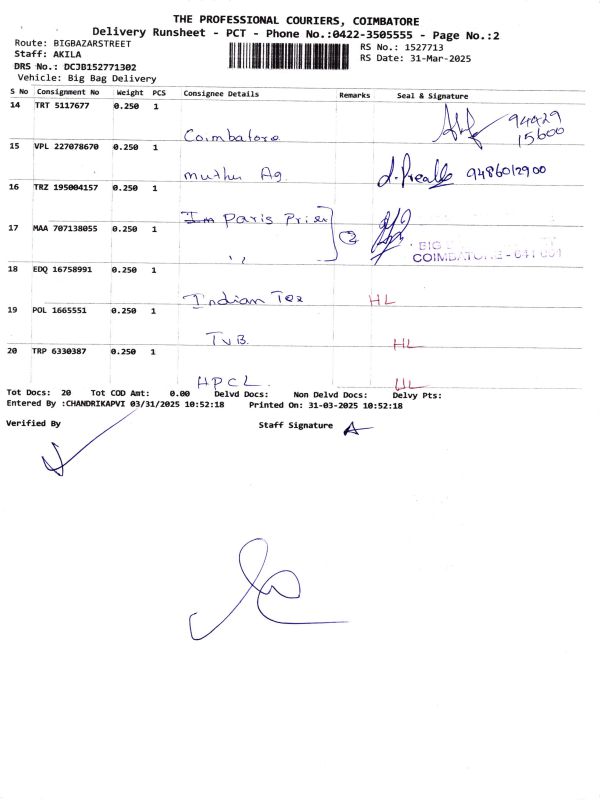 THE PROFESSIONAL COURIERS, COIMBATORE
Delivery Runsheet - PCT - Phone No.:0422-3505555 - Page No.:2
Route: BIGBAZARSTREET
RS No.: 1527713
Staff: AKILA
RS Date: 31-Mar-2025
DRS No.: DCJB152771302
Vehicle: Big Bag Delivery
S No Consignment No Weight PCS Consignee Details Remarks Seal & Signature
14 TRT 5117677 0.250 1
94429
15600
Coimbatore
15 VPL 227078670 0.250 1
Muthu Ag. 9486012900
16 TRZ 195004157 0.250 1
Paris
17 MAA 707138055 0.250 1
2
BIG
COIMBATORE - 641 001
18 EDQ 16758991 0.250 1
Indian Tex HL
19 POL 1665551 0.250 1
TVB. HL
20 TRP 6330387 0.250 1
HPCL. HL
Tot Docs: 20 Tot COD Amt: 0.00 Delvd Docs: Non Delvd Docs: Delvy Pts:
Entered By :CHANDRIKAPVI 03/31/2025 10:52:18 Printed On: 31-03-2025 10:52:18
Verified By Staff Signature